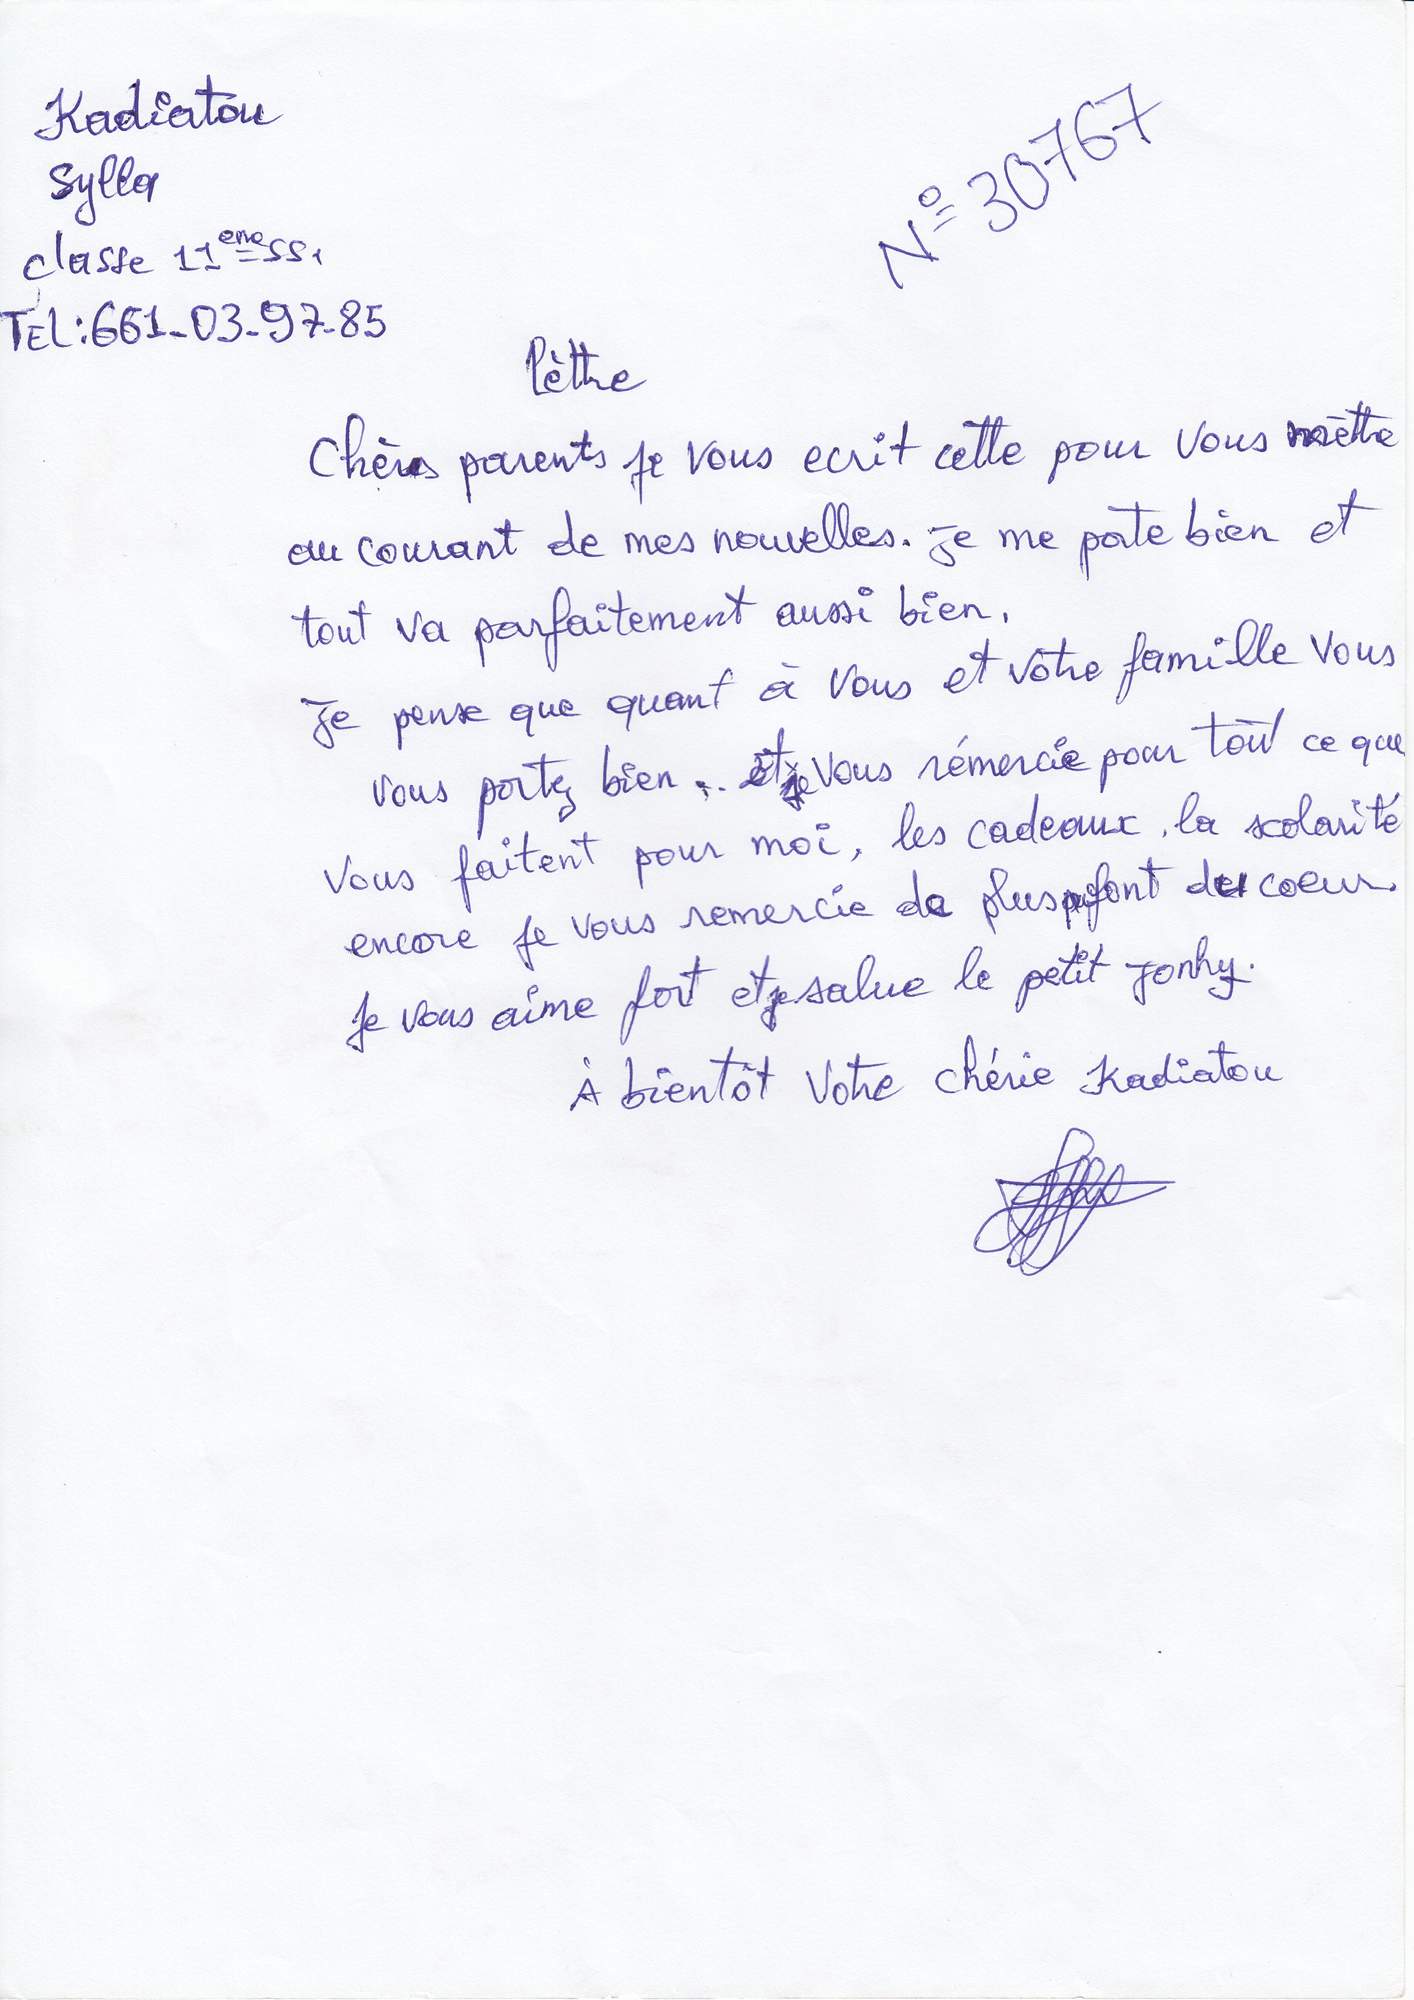 Kadiatou
Sylla
N° 30767
classe 11eme SS1
TEL: 661-03-97-85
lèttre
Chères parents je vous ecrit cette pour vous mèttre
au courant de mes nouvelles. Je me porte bien et
tout va parfaitement aussi bien.
Je pense que quant à vous et vôtre famille vous
vous portez bien. et je vous rémercie pour tout ce que
vous faitent pour moi, les cadeaux, la scolarité
encore je vous remercie de plus font du coeur.
Je vous aime fort et je salue le petit
À bientôt Votre chérie Kadiatou